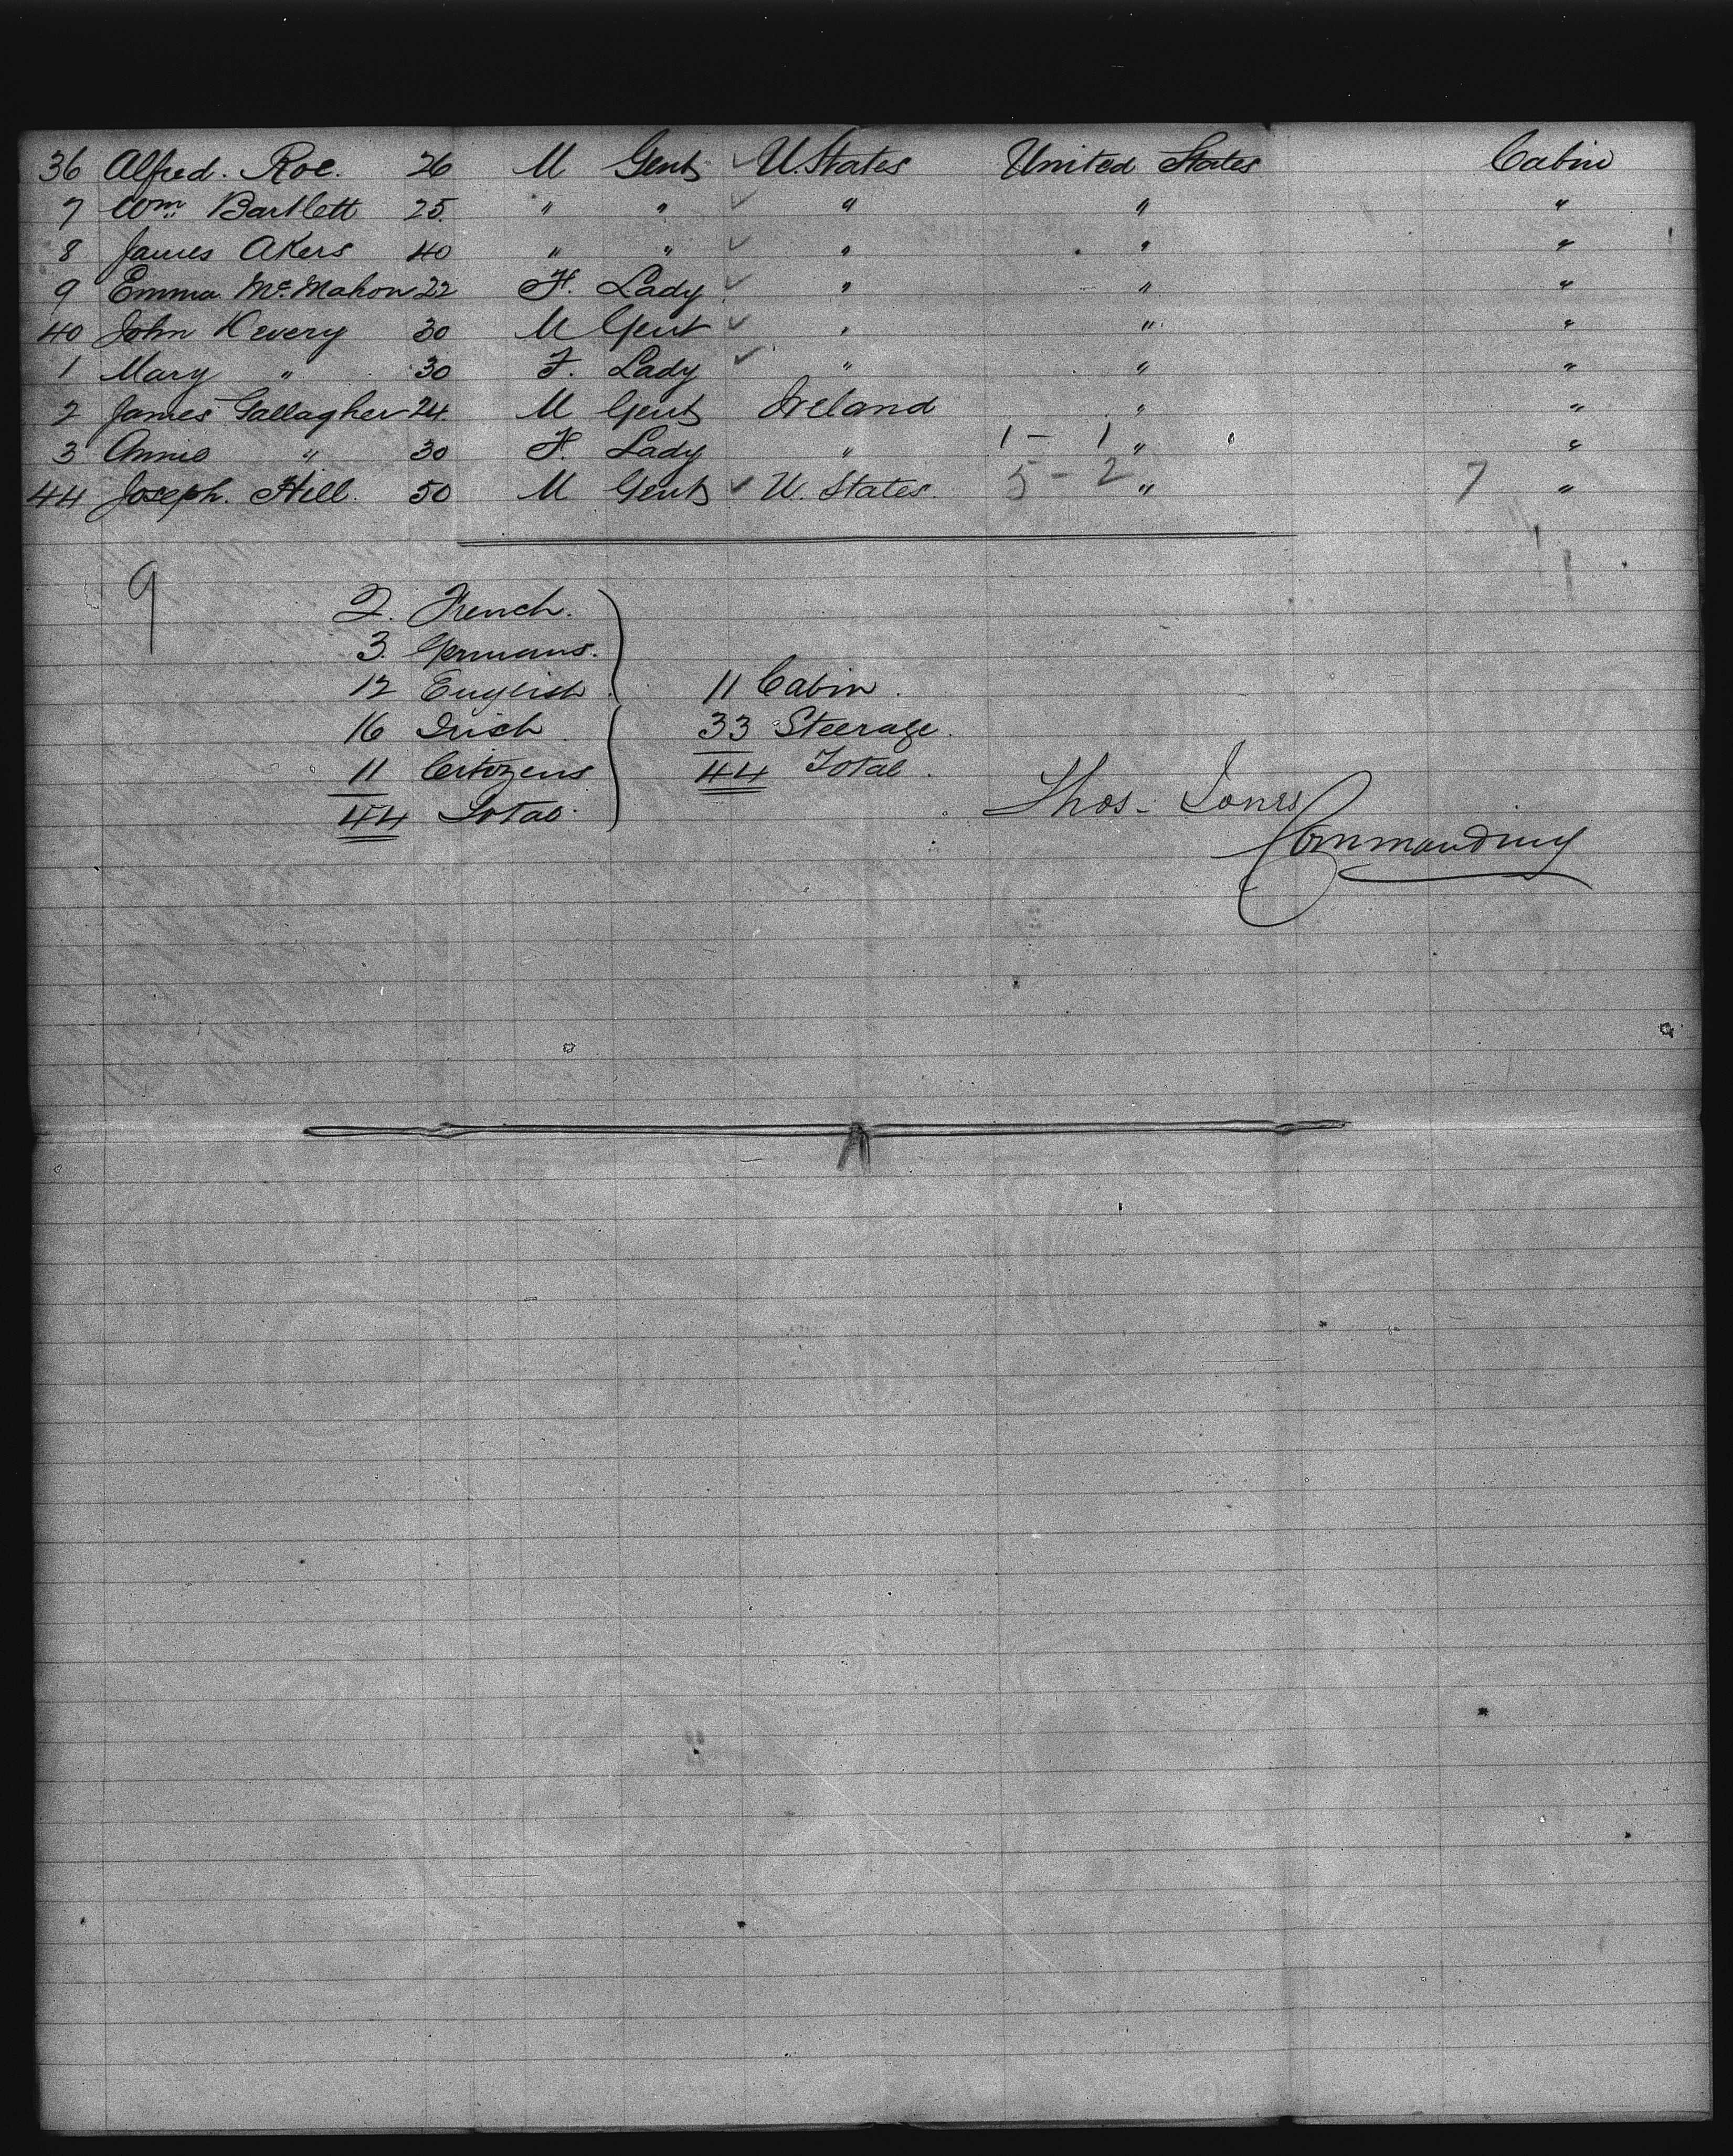 36 Alfred. Roe. 26 M Gent U. States United States Cabin
7 Wm Bartlett 25. " " " " "
8 James Akers 40 " " " " "
9 Emma Mc. Mahon 22 F. Lady " " "
40 John Devery 30 M Gent " " "
1 Mary " 30 F. Lady " " "
2 James Gallagher 24. M Gent Ireland " "
3 Annie " 30 F. Lady " 1 - 1 " "
44 Joseph. Hill. 50 M Gent U. States. 5 - 2 " 7 "
9
2. French.
3. Germans.
12 English
16 Irish
11 Citizens
44 Total.
11 Cabin.
33 Steerage.
44 Total.
Thos. Jones
Commanding